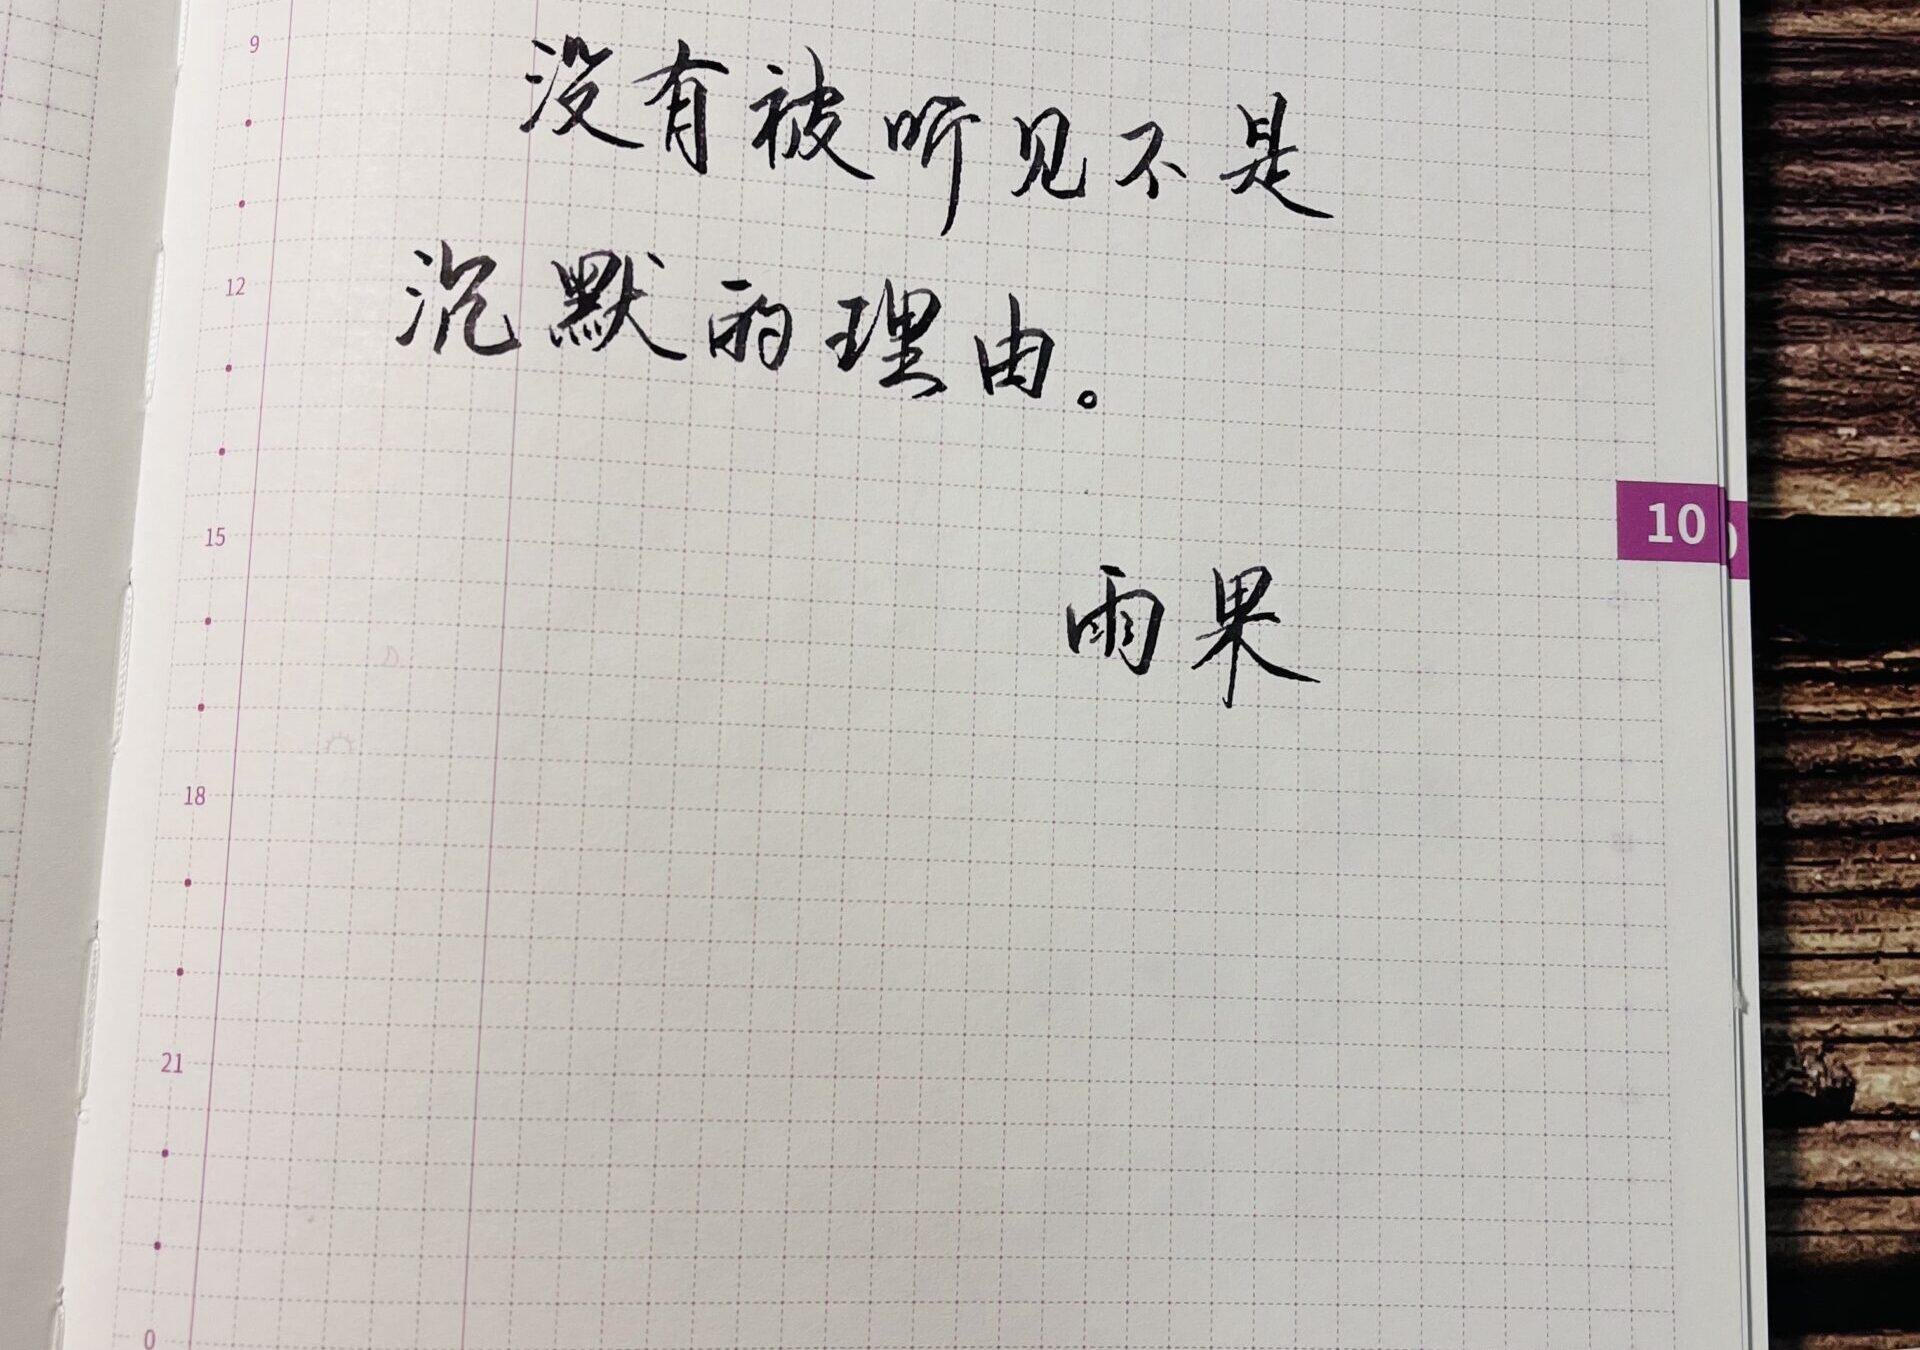 9
没有被听见不是
12
沉默的理由。
15
10
雨果
18
21
0